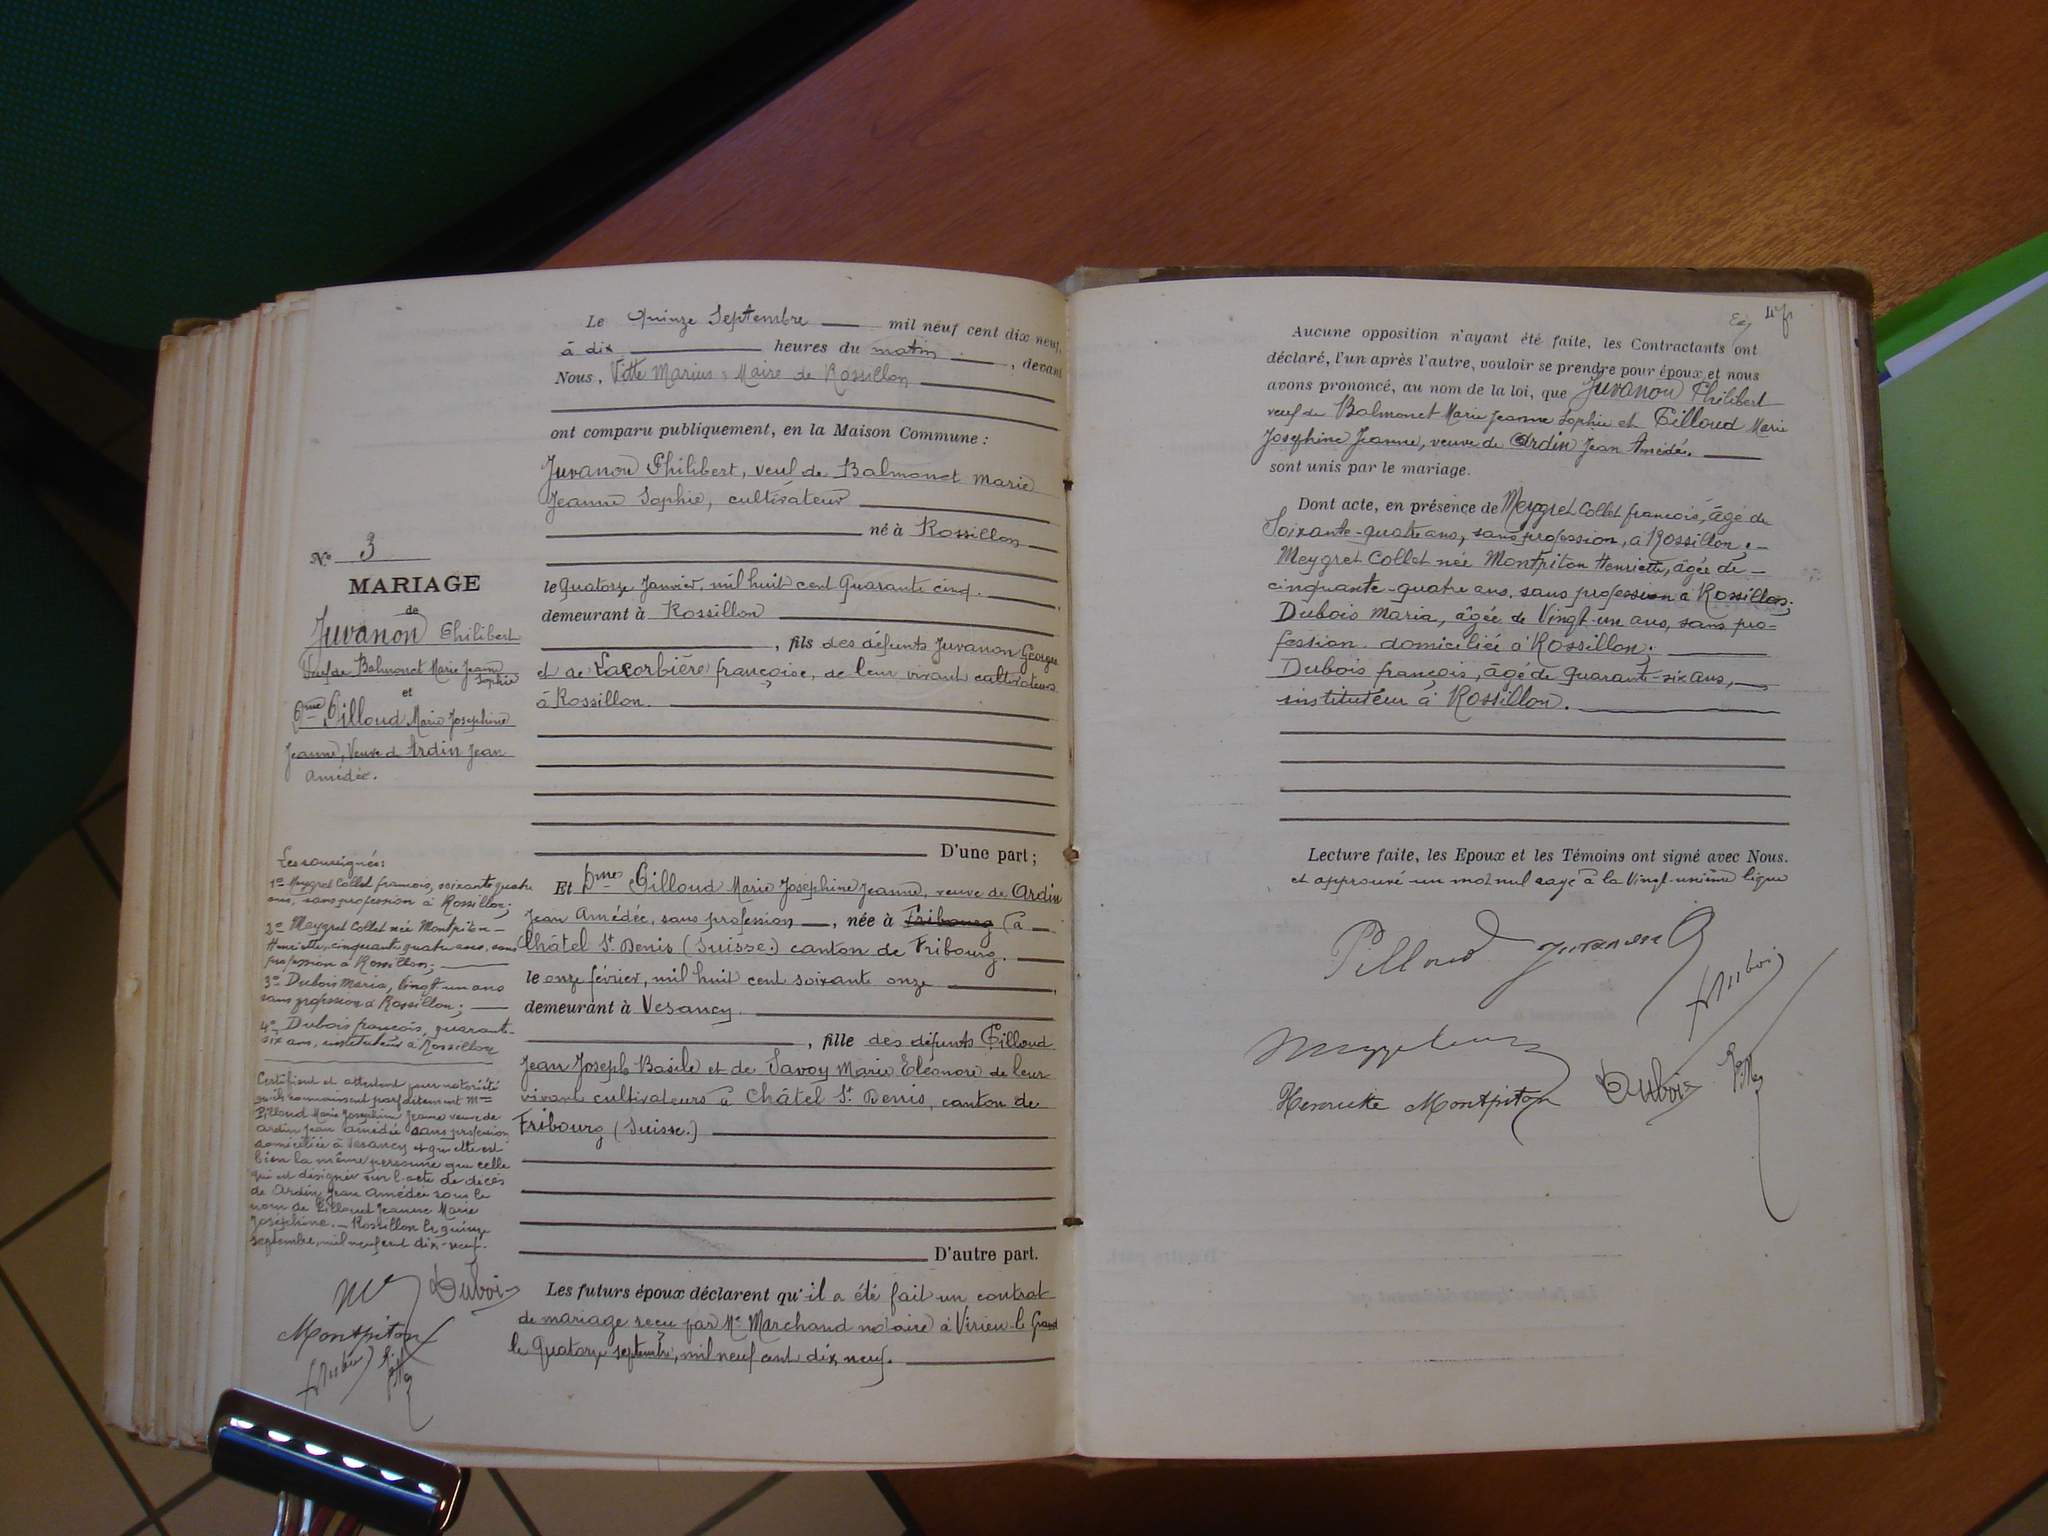 Le Quinze Septembre mil neuf cent dix neuf,
à dix heures du matin, devant
Nous, Vitte Marius, Maire de Rossillon
ont comparu publiquement, en la Maison Commune :
Juvanon Philibert, veuf de Balmonet Marie
Jeanne Sophie, cultivateur
né à Rossillon
le quatorze Janvier, mil huit cent quarante cinq.
demeurant à Rossillon
, fils des défunts Juvanon Georges
et de Lacorbière françoise, de leur vivant cultivateurs
à Rossillon.
D'une part ;
Et Dme Pilloud Marie Joséphine Jeanne, veuve de Ardin
Jean Amédée, sans profession, née à Fribourg (à
Châtel St Denis (Suisse.) canton de Fribourg.
le onze février, mil huit cent soixante onze,
demeurant à Vesancy.
, fille des défunts Pilloud
Jean Joseph Basile et de Savoy Marie Eléonore de leur
vivant cultivateurs à Châtel St Denis, canton de
Fribourg (Suisse.)
D'autre part.
Les futurs époux déclarent qu'il a été fait un contrat
de mariage reçu par Me Marchand notaire à Virieu-le Grand
le quatorze septembre, mil neuf cent dix neuf.
No 3
MARIAGE
de
Juvanon Philibert
Veuf de Balmonet Marie Jeanne
Sophie
et
Dme Pilloud Marie Josephine
Jeanne, Veuve de Ardin Jean
Amédée.
Les soussignés :
1o Meygret Collet francois, soixante quatre
ans, sans profession à Rossillon ;
2o Meygret Collet née Montpiton
Henriette, cinquante quatre ans, sans
profession à Rossillon ;
3o Dubois Maria, Vingt-un ans
sans profession à Rossillon ;
4o Dubois francois, quarante-
six ans, instituteur à Rossillon
Certifient et attestent pour notoriété
qu'ils connaissent parfaitement Mme
Pilloud Marie Josephine Jeanne veuve de
Ardin Jean Amédée sans profession
domiciliée à Vesancy et qu'elle est
bien la même personne que celle
qui est désignée sur l'acte de décès
de Ardin Jean Amédée sous le
nom de Pilloud Jeanne Marie
Joséphine. — Rossillon le quinze
septembre, mil neuf cent dix-neuf.
Dubois
Montpiton
Aucune opposition n'ayant été faite, les Contractants ont
déclaré, l'un après l'autre, vouloir se prendre pour époux et nous
avons prononcé, au nom de la loi, que Juvanon Philibert
veuf de Balmonet Marie Jeanne Sophie et Pilloud Marie
Josephine Jeanne, veuve de Ardin Jean Amédée.
sont unis par le mariage.
Dont acte, en présence de Meygret Collet francois, âgé de
Soixante-quatre ans, sans profession, à Rossillon ; —
Meygret Collet née Montpiton Henriette, âgée de —
cinquante-quatre ans, sans profession à Rossillon ;
Dubois Maria, âgée de Vingt-un ans, sans pro-
fession domiciliée à Rossillon ;
Dubois françois, âgé de quarante-six ans,
instituteur à Rossillon.
Lecture faite, les Epoux et les Témoins ont signé avec Nous.
et approuvé un mot nul rayé à la Vingt-unième ligne
Pilloud Juvanon
Henriette Montpiton Dubois